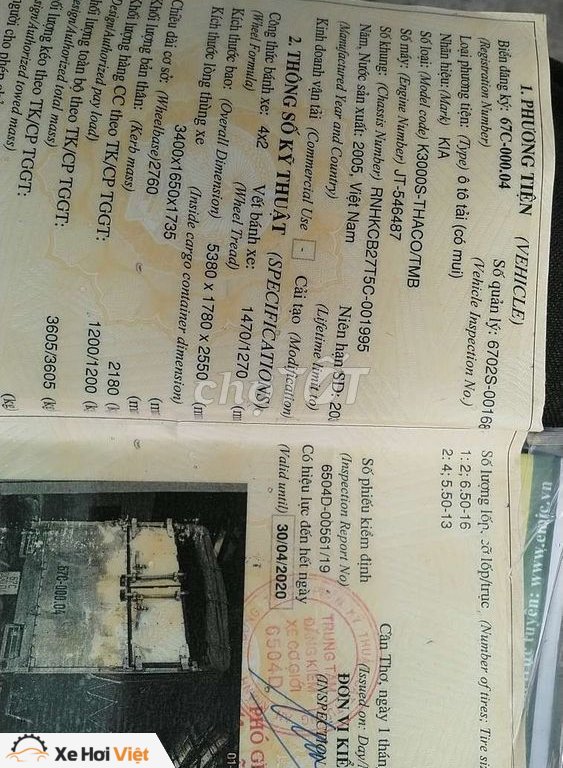 1. PHƯƠNG TIỆN (VEHICLE)
Biển đăng ký: 67C-000.04
Số quản lý: 6702S-00168
(Registration Number)
(Vehicle Inspection No.)
Loại phương tiện: (Type) ô tô tải (có mui)
Nhãn hiệu: (Mark) KIA
Số loại: (Model code) K3000S-THACO/TMB
Số máy: (Engine Number) JT-546487
Số khung: (Chassis Number) RNHKCB27T5C-001995
Năm, Nước sản xuất: 2005, Việt Nam
Niên hạn SD: 20
(Manufactured Year and Country)
(Lifetime limit to)
Kinh doanh vận tải (Commercial Use)
Cải tạo (Modification)
2. THÔNG SỐ KỸ THUẬT (SPECIFICATIONS)
Công thức bánh xe: 4x2
Vết bánh xe: 1470/1270
(Wheel Formula)
(Wheel Tread)
Kích thước bao: (Overall Dimension) 5380 x 1780 x 2550
Kích thước lòng thùng xe (Inside cargo container dimension)
3400x1650x1735
Chiều dài cơ sở: (Wheelbase) 2760
Khối lượng bản thân: (Kerb mass) 2180
Khối lượng hàng CC theo TK/CP TGGT: 1200/1200
Design/Authorized pay load)
lượng toàn bộ theo TK/CP TGGT: 3605/3605
esign/Authorized total mass)
lượng kéo theo TK/CP TGGT:
towed mass)
Số lượng lốp, cỡ lốp/trục (Number of tires; Tire si
1: 2; 6.50-16
2: 4; 5.50-13
Số phiếu kiểm định
(Inspection Report No)
6504D-00561/19
Có hiệu lực đến hết ngày
(Valid until) 30/04/2020
Cần Thơ, ngày 1 thán
(Issued on: Day/
ĐƠN VỊ KIỂ
(INSPECTION
TRUNG TÂM
ĐĂNG KIỂM
XE CƠ GIỚI
6504D
PHÓ G
67C-000.04
chợTỐT
Xe Hơi Việt